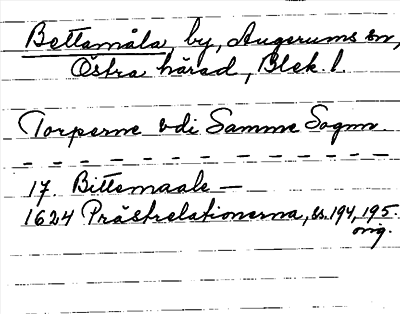 Bettamåla, by, Augerums sn,
Östra härad, Blek. l.
Torperne vdi Samme Sognn.
- - - - - - - - - - - - - - - -
17. Bittemaale —
1624 Prästrelationerna, ss. 194, 195.
orig.